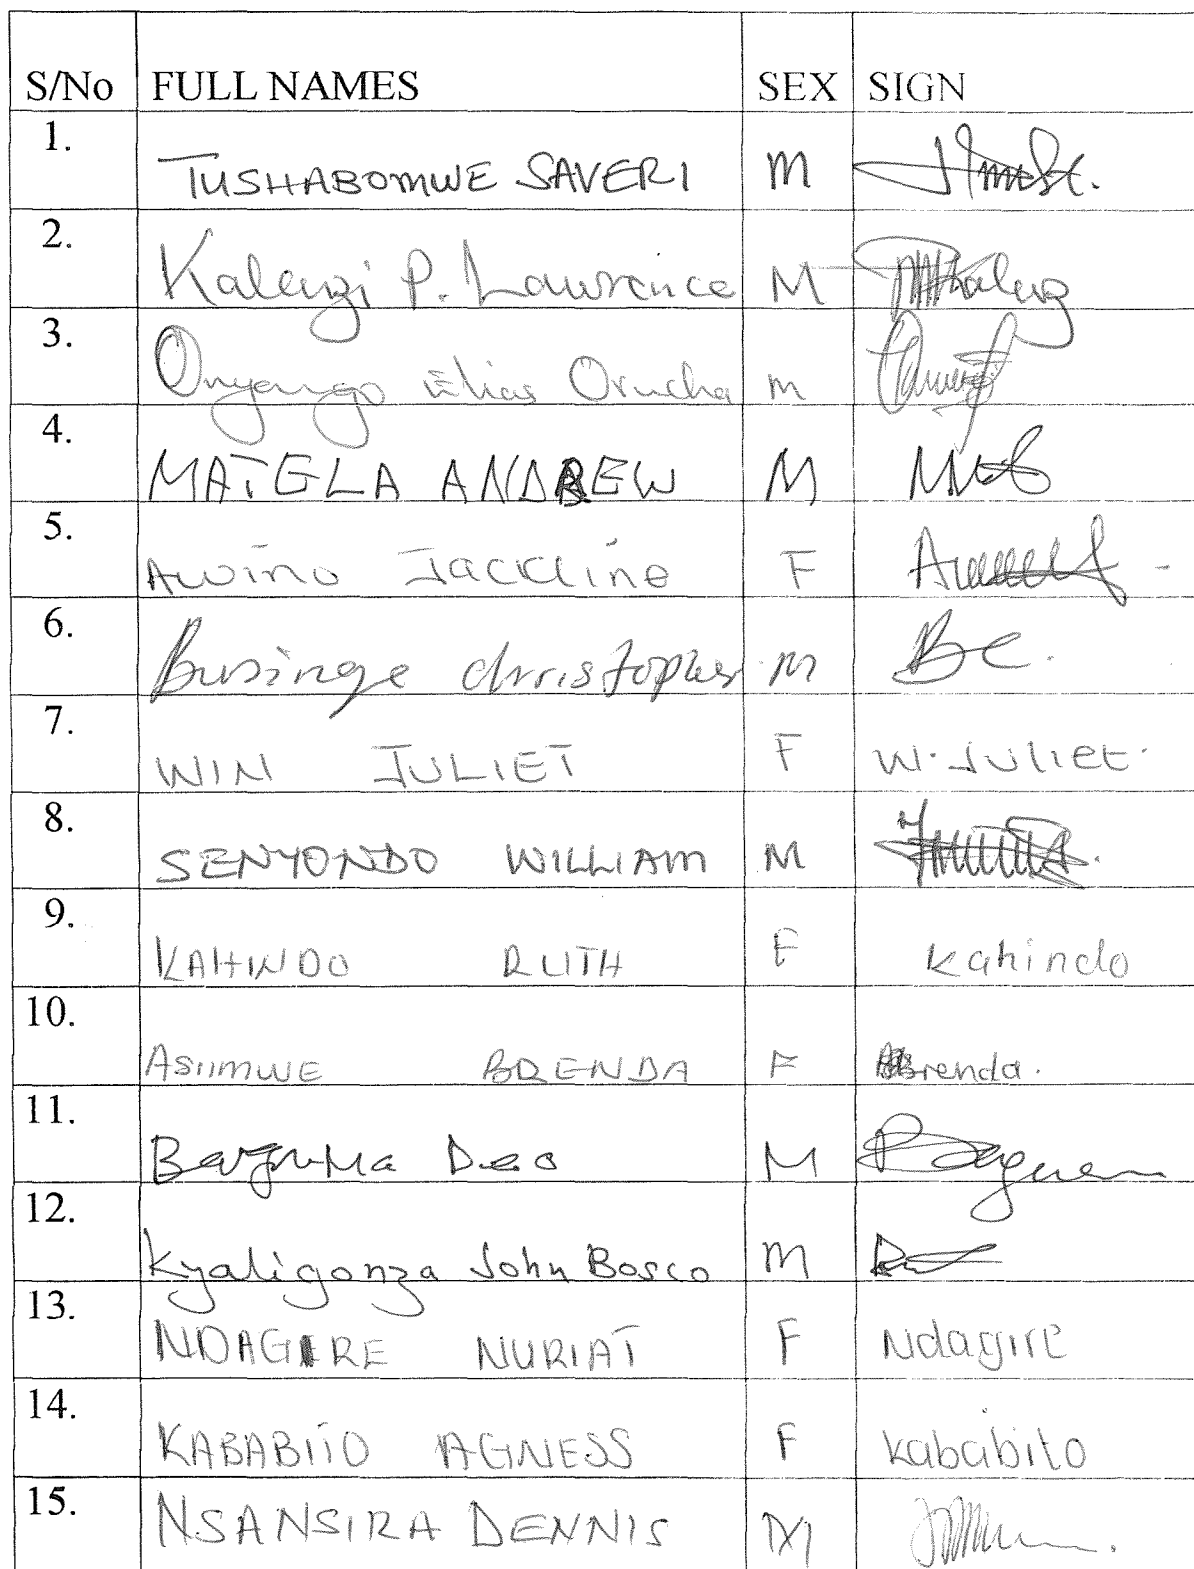 S/No FULL NAMES SEX SIGN
1. TUSHABOMWE SAVERI M
2. Kalenzi P. Lawrence M
3. Onyango Elias Orucha m
4. MATGLA ANDREW M
5. Awino Jackline F
6. Businge christopher M
7. WIN JULIET F W. Juliet.
8. SENYONDO WILLIAM M
9. KAHINDO RUTH F Kahindo
10. Asiimwe BRENDA F Brenda.
11. Baguma Deo M
12. Kyaligonza John Bosco M
13. NDAGIRE NURIAT F Ndagire
14. KABABITO AGNESS F kababito
15. NSANSIRA DENNIS M